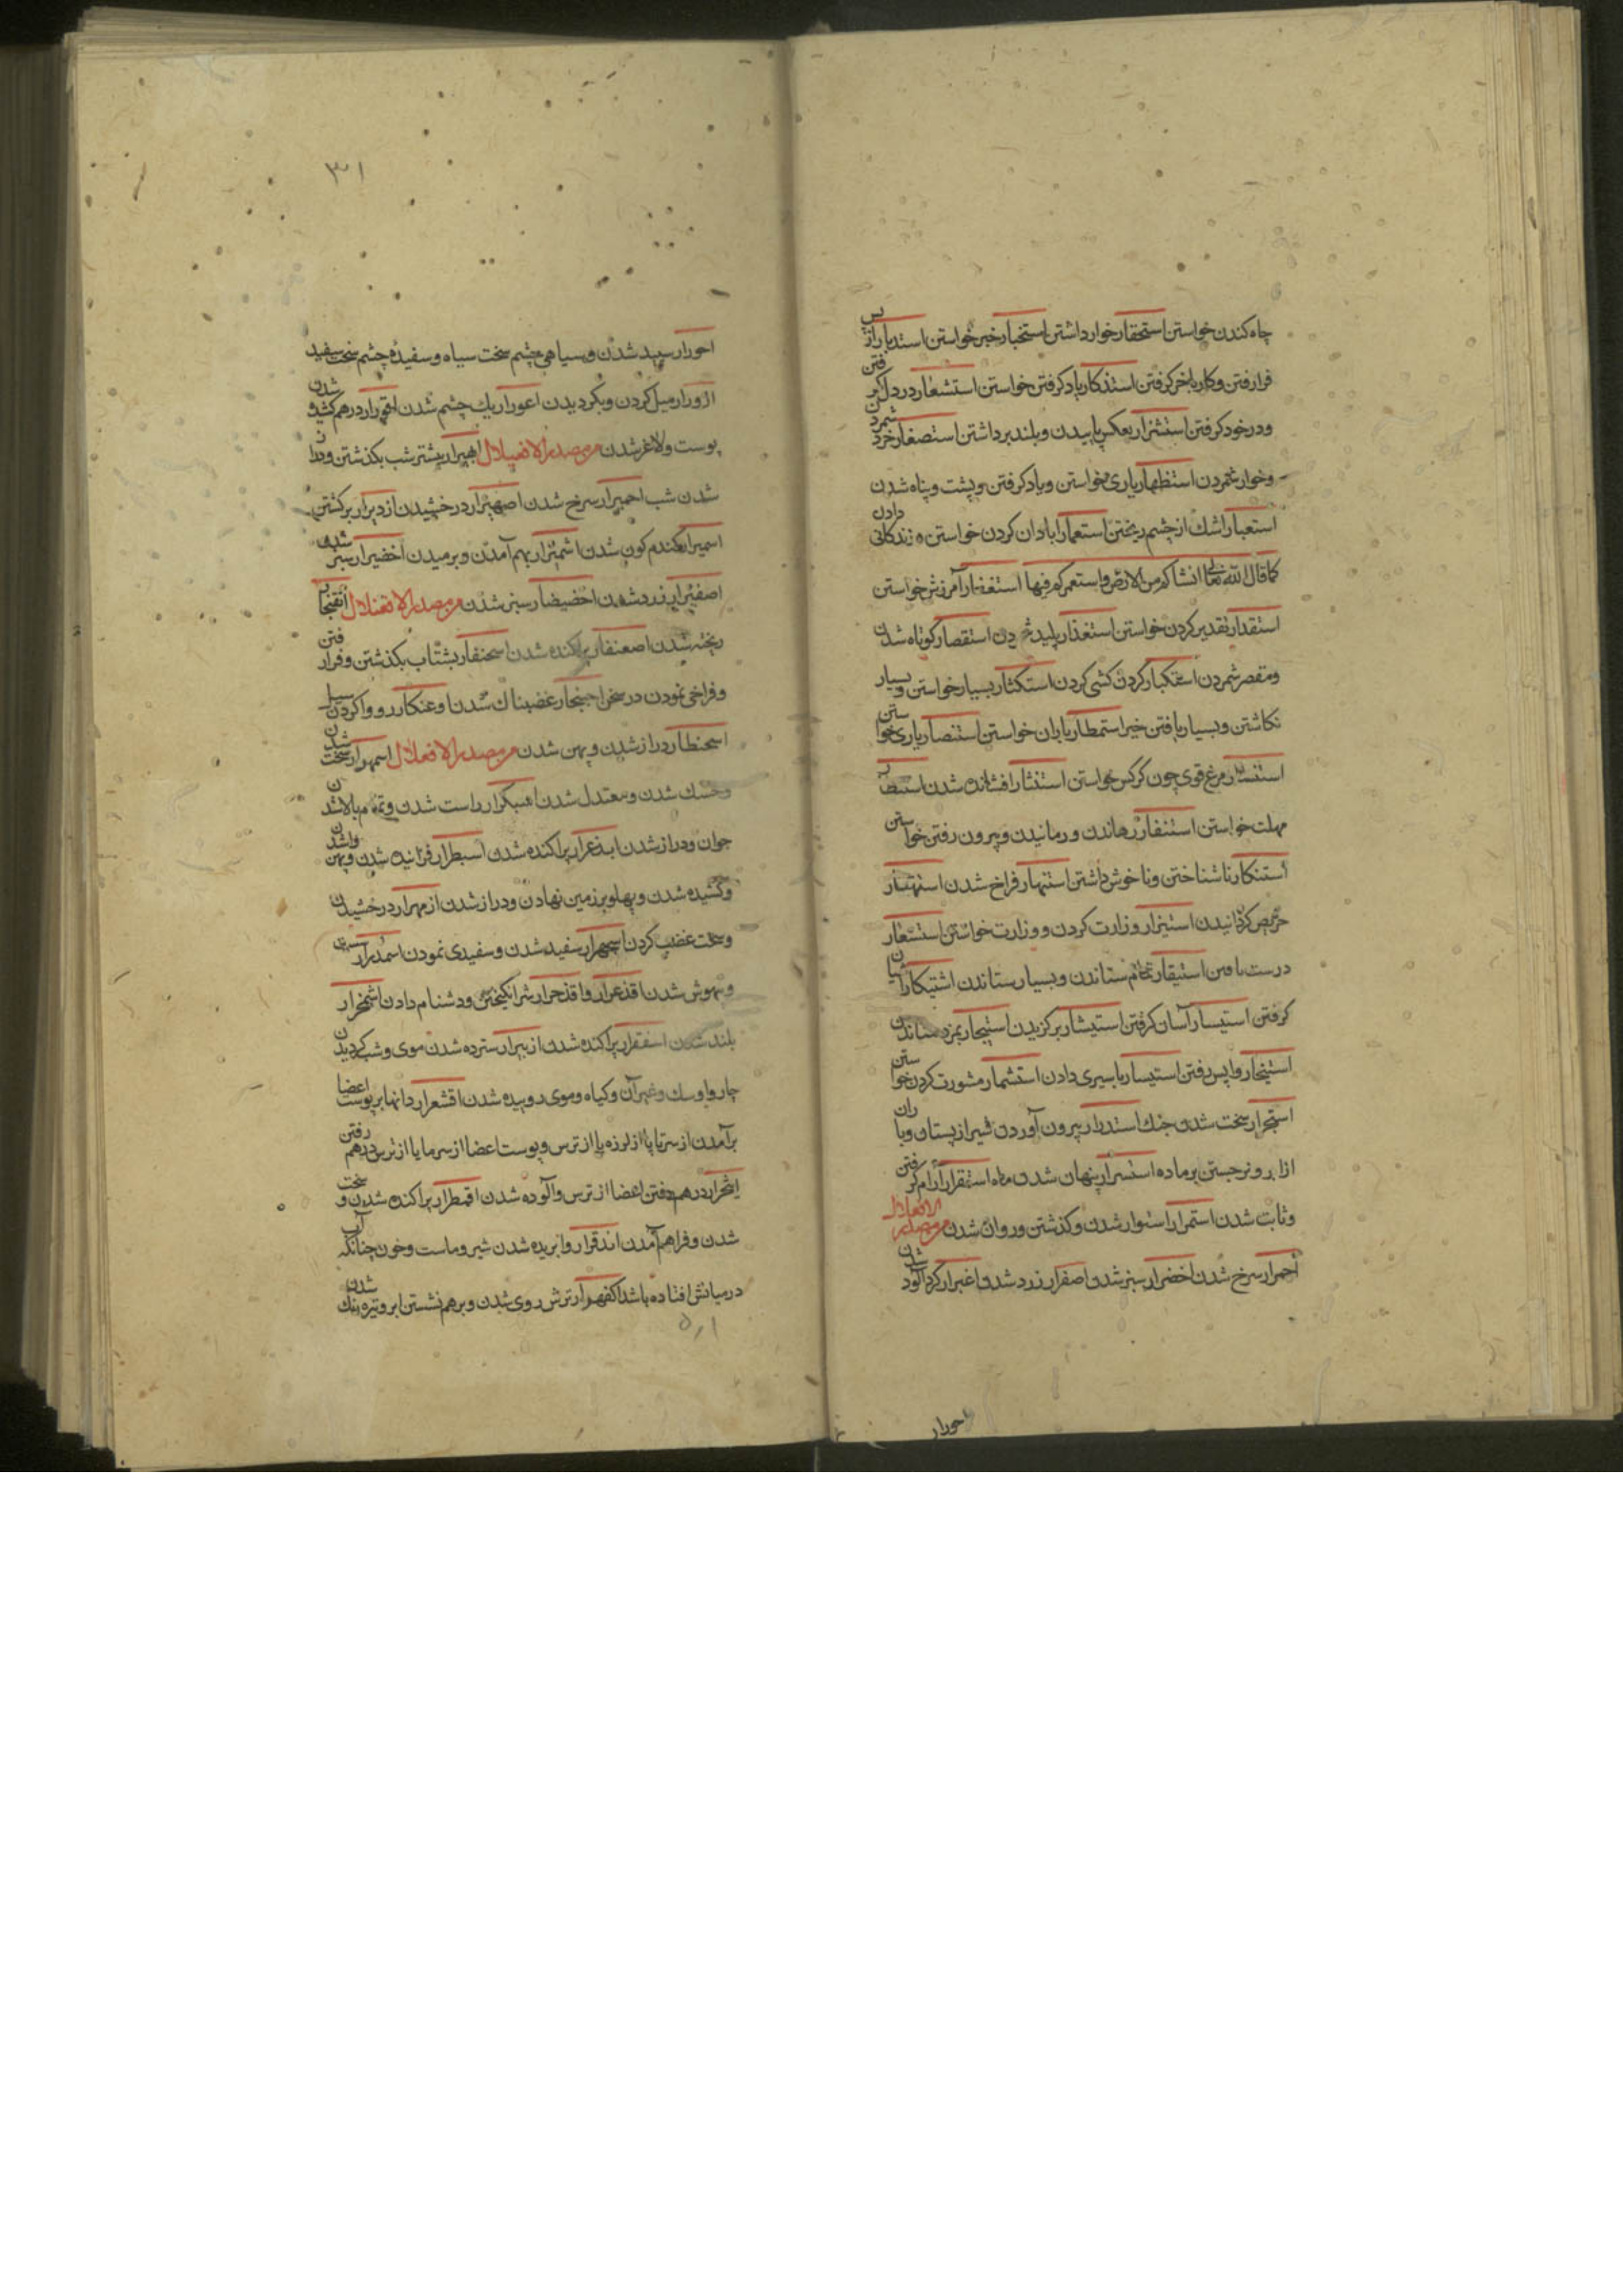 چاه کندن خواستن استحقار خوار داشتن استخبار خبر خواستن استدبار از پس
فرا رفتن و کار باخر کرفتن استذکار یاد کرفتن خواستن استشعار در دل کر فتن
و در خود کرفتن استشزار بعکس پاییدن و بلند برداشتن استصغار خرد شمردن
و خوار شمردن استظهار یاری خواستن و یاد کرفتن و پشت و پناه شدن
استعبار اشک از چشم ریختن استعمار ابادان کردن خواستن و زندکانی دادن
کما قال الله تعالی انشاکم من الارض و استعمرکم فیها استغفار آمرزش خواستن
استقدار تقدیر کردن خواستن استقذار پلید شمردن استقصار کوتاه شدن
و مقصر شمردن استکبار کردن کشی کردن استکثار بسیار خواستن و بسیار
نکاشتن و بسیار یافتن خیر استمطار باران خواستن استنصار یاری خواستن
استنسار مرغ قوی چون کرکس خواستن استنثار افشانده شدن استنظار
مهلت خواستن استنفار رهاندن و رمانیدن و بیرون رفتن خواستن
استنکار ناشناختن و ناخوش داشتن استنهار فراخ شدن استهتار
حریص کردانیدن استیزار وزارت کردن و وزارت خواستن استسعار
استیقار تمام ستاندن و بسیار ستاندن
کرفتن استیسار آسان کرفتن استیشار برکزیدن استیجار بمزد ستاندن
استیخار واپس رفتن استیسار باسیری دادن استشمار مشورت کردن خواستن
استحرار سخت شدن جنک استدرار بیرون آوردن شیر از پستان و باران
از ابر و نر جستن بر ماده استسرار پنهان شدن ماه استقرار آرام کرفتن
و ثابت شدن استمرار استوار شدن و کذشتن و روان شدن من مصدر الافعلال
احمرار سرخ شدن اخضرار سبز شدن اصفرار زرد شدن اغبرار کرد آلود شدن
احورار
۳۱
احورار سپید شدن و سیاهی چشم سخت سیاه و سفیدهٔ چشم سخت سفید
ازورار میل کردن و بکردیدن اعورار یک چشم شدن اقورار درهم کشیدن
پوست و لاغر شدن من مصدر الافعیلال ابهیرار بیشتر شب بکذشتن و دراز
شدن شب احمیرار سرخ شدن اصهیرار درخشیدن ازدیرار برکشتن
اسمیرار کندم کون شدن اشمئزار بهم آمدن و برمیدن اخضیرار سبز شدن
اصفیرار زرد شدن اخضیضار سبز شدن من مصدر الافعنلال
ریخته شدن اصعنفار پراکنده شدن اسحنفار بشتاب بکذشتن و فرا رفتن
و فراخی نمودن در سخن احبنجار غضبناک شدن
اسحنطار دراز شدن و پهن شدن من مصدر الافعلال اسمهرار سخت شدن
و خشک شدن و معتدل شدن اسبکرار راست شدن و تمام بالا شدن
جوان و دراز شدن ابذعرار پراکنده شدن اسبطرار
و کشیده شدن و پهلو بر زمین نهادن و دراز شدن ازمهرار درخشیدن
و سخت غضب کردن اسجهرار سفید شدن و سفیدی نمودن اسمدرار
و بیهوش شدن اقذعرار و اقذحرار شر انکیختن و دشنام دادن اشمخرار
بلند شدن اسفقرار پراکنده شدن ازبیرار سترده شدن موی و شب کردیدن
چاروا و سک و غیر آن و کیاه و موی روییده شدن اقشعرار دانها بر پوست اعضا
برآمدن از سر تا پا از لرزه یا از ترس و پوست اعضا از سرما یا از ترس درهم رفتن
درهم رفتن اعضا از ترس و آلوده شدن اقمطرار پراکنده شدن و سخت
شدن و فراهم آمدن اذقرار وا بریده شدن شیر و ماست و خون چنانکه آب
در میانش افتاده باشد اکفهرار ترش روی شدن و برهم نشستن ابر و تیره رنک شدن